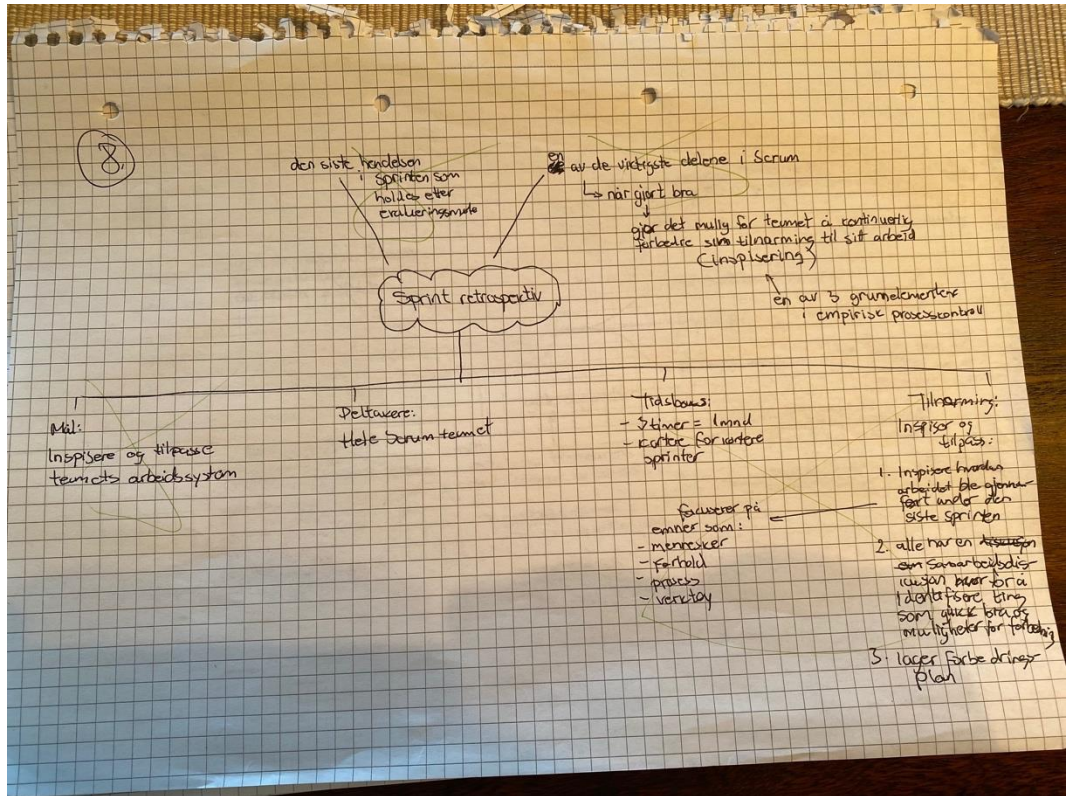 8.
den siste hendelsen
i sprinten som
holdes etter
evalueringsmøte
en av de viktigste delene i Scrum
↳ når gjort bra
gjør det mulig for teamet å kontinuerlig
forbedre sinn tilnærming til sitt arbeid
(inspisering)
en av 3 grunnelementer
i empirisk prosesskontroll
Sprint retrospektiv
Mål:
Inspisere og tilpasse
teamets arbeidssystem
Deltakere:
Hele Scrum teamet
Tidsboks:
- 3 timer = 1 mnd
- kortere for kortere
sprinter
fokuserer på
emner som:
- mennesker
- forhold
- prosess
- verktøy
Tilnærming:
Inspiser og
tilpass:
1. Inspisere hvordan
arbeidet ble gjennom
ført under den
siste sprinten
2. alle har en
samarbeidsdis
kusjon for å
identifisere ting
som gikk bra og
muligheter for forbedring
3. lager forbedrings
plan